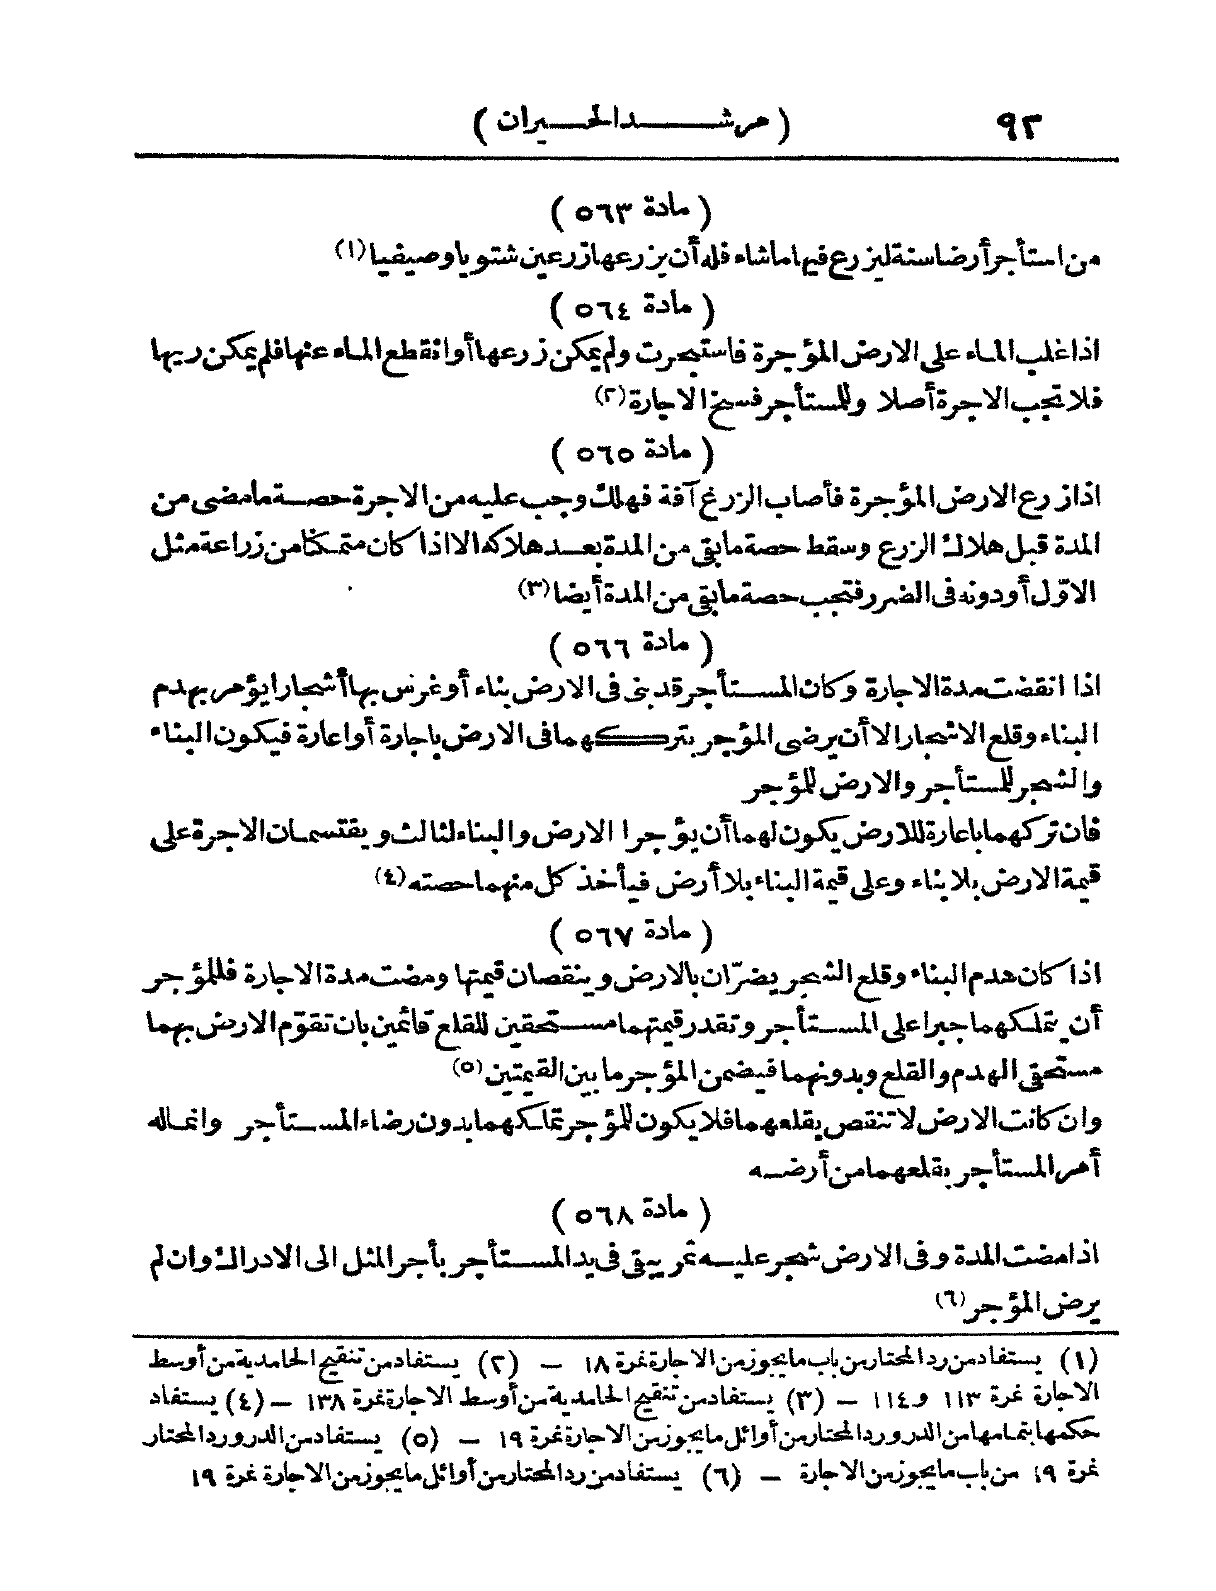 ٩٢ (مرشد الحيران)
(مادة ٥٦٣)
من استأجر أرضا سنة ليزرع فيها ما شاء فله أن يزرعها زرعين شتويا وصيفيا (١)
(مادة ٥٦٤)
اذا غلب الماء على الارض المؤجرة فاستبحرت ولم يمكن زرعها أو انقطع الماء عنها فلم يمكن ريها
فلا تجب الاجرة أصلا وللمستأجر فسخ الاجارة (٢)
(مادة ٥٦٥)
اذا زرع الارض المؤجرة فأصاب الزرع آفة فهلك وجب عليه من الاجرة حصة ما مضى من
المدة قبل هلاك الزرع وسقط حصة ما بقى من المدة بعد هلاكه الا اذا كان متمكنا من زراعة مثل
الاوّل أو دونه فى الضرر فتجب حصة ما بقى من المدة أيضا (٣)
(مادة ٥٦٦)
اذا انقضت مدة الاجارة وكان المستأجر قد بنى فى الارض بناء أو غرس بها أشجارا يؤمر بهدم
البناء وقلع الاشجار الا أن يرضى المؤجر بتركهما فى الارض باجارة أو اعارة فيكون البناء
والشجر للمستأجر والارض للمؤجر
فان تركهما باعارة للارض يكون لهما أن يؤجرا الارض والبناء لثالث ويقتسمان الاجرة على
قيمة الارض بلا بناء وعلى قيمة البناء بلا أرض فيأخذ كل منهما حصته (٤)
(مادة ٥٦٧)
اذا كان هدم البناء وقلع الشجر يضرّان بالارض وينقصان قيمتها ومضت مدة الاجارة فللمؤجر
أن يتملكهما جبرا على المستأجر وتقدر قيمتهما مستحقين للقلع قائمين بان تقوّم الارض بهما
مستحقى الهدم والقلع وبدونهما فيضمن المؤجر ما بين القيمتين (٥)
وان كانت الارض لا تنقص بقلعهما فلا يكون للمؤجر تملكهما بدون رضاء المستأجر وانما له
أمر المستأجر بقلعهما من أرضه
(مادة ٥٦٨)
اذا مضت المدة وفى الارض شجر عليه ثمر يبقى فى يد المستأجر بأجر المثل الى الادراك وان لم
يرض المؤجر (٦)
(١) يستفاد من رد المحتار من باب ما يجوز من الاجارة نمرة ١٨ — (٢) يستفاد من تنقيح الحامدية من أوسط
الاجارة نمرة ١١٣ و ١١٤ — (٣) يستفاد من تنقيح الحامدية من أوسط الاجارة نمرة ١٣٨ — (٤) يستفاد
حكمها بتمامها من الدر ورد المحتار من أوائل ما يجوز من الاجارة نمرة ١٩ — (٥) يستفاد من الدر ورد المحتار
نمرة ١٩ من باب ما يجوز من الاجارة — (٦) يستفاد من رد المحتار من أوائل ما يجوز من الاجارة نمرة ١٩